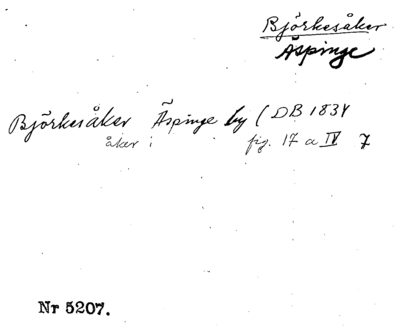 Björkesåker
Äspinge
Björkesåker Äspinge by (DB 1834
åker i fig. 17 a IV 7
Nr 5207.